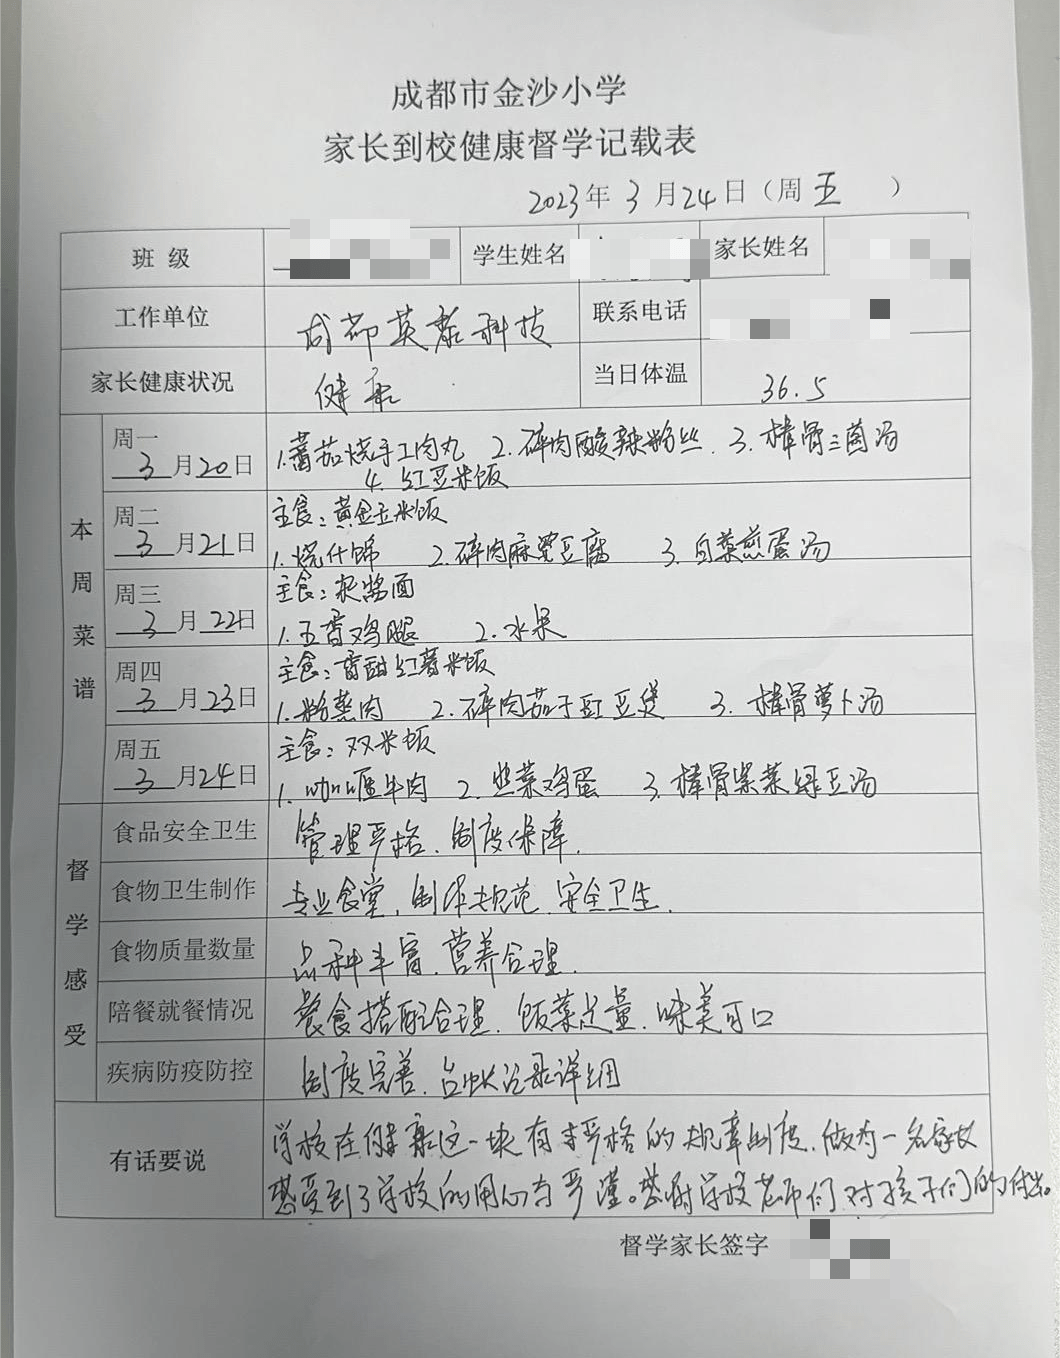 成都市金沙小学
家长到校健康督学记载表
2023年 3 月 24 日（周 五 ）
班 级 学生姓名 家长姓名
工作单位 成都英泰科技 联系电话
家长健康状况 健康 当日体温 36.5
本周菜谱
周一
3 月 20 日
1.蕃茄烧手工肉丸 2.碎肉酸辣粉丝. 3.棒骨三菌汤
4.红豆米饭
周二
3 月 21 日
主食：黄金玉米饭
1.烧什锦 2.碎肉麻婆豆腐 3.白菜煎蛋汤
周三
3 月 22 日
主食：炸酱面
1.五香鸡腿 2.水果
周四
3 月 23 日
主食：香甜红薯米饭
1.粉蒸肉 2.碎肉茄子豇豆煲 3.棒骨萝卜汤
周五
3 月 24 日
主食：双米饭
1.咖喱牛肉 2.韭菜鸡蛋 3.棒骨紫菜绿豆汤
督学感受
食品安全卫生 管理严格、制度保障.
食物卫生制作 专业食堂，制作规范、安全卫生.
食物质量数量 品种丰富、营养合理.
陪餐就餐情况 餐食搭配合理、饭菜足量、味美可口
疾病防疫防控 制度完善、台帐记录详细
有话要说
学校在健康这一块有求严格的规章制度，做为一名家长
感受到了学校的用心与严谨。感谢学校老师们对孩子们的付出。
督学家长签字